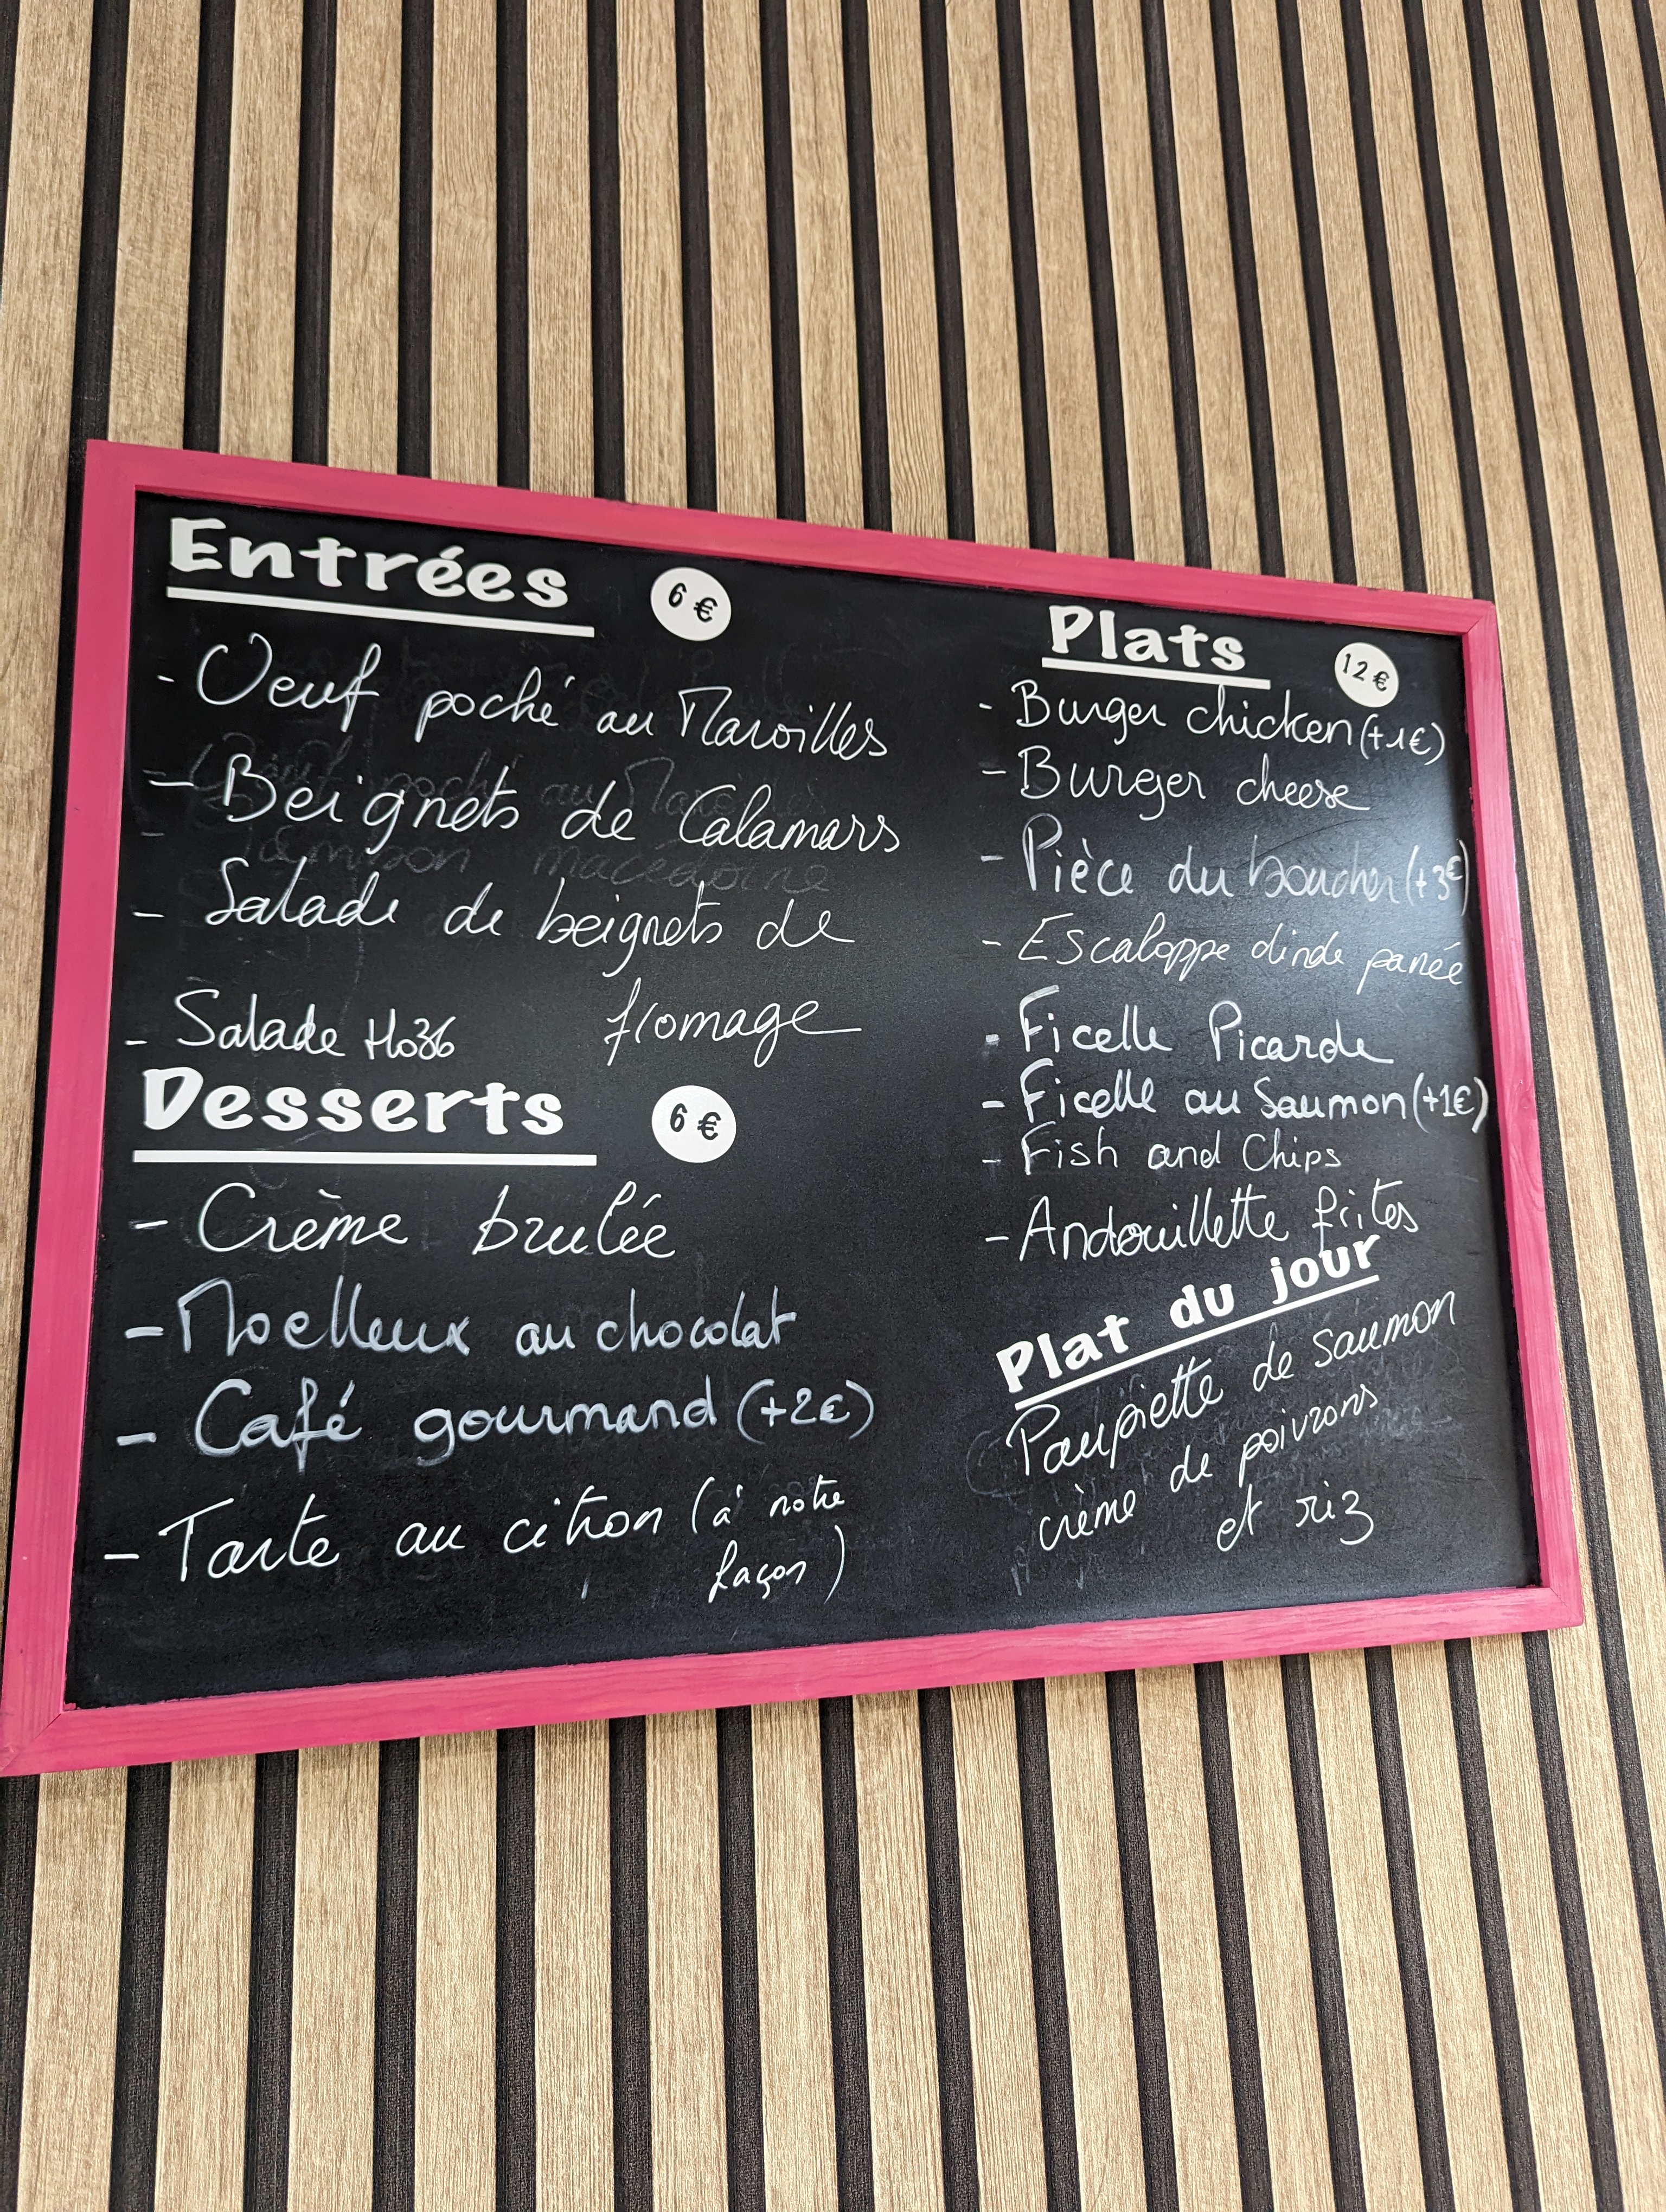 Entrées 6 €
- Oeuf poché au Maroilles
- Beignets de Calamars
- Salade de beignets de
fromage
- Salade Ho36
Desserts 6 €
- Crème brulée
- Moelleux au chocolat
- Café gourmand (+2€)
- Tarte au citron (à notre
façon)
Plats 12 €
- Burger chicken (+1€)
- Burger cheese
- Pièce du boucher (+3€)
- Escaloppe dinde panée
- Ficelle Picarde
- Ficelle au Saumon (+1€)
- Fish and Chips
- Andouillette frites
Plat du jour
Paupiette de saumon
crème de poivrons
et riz